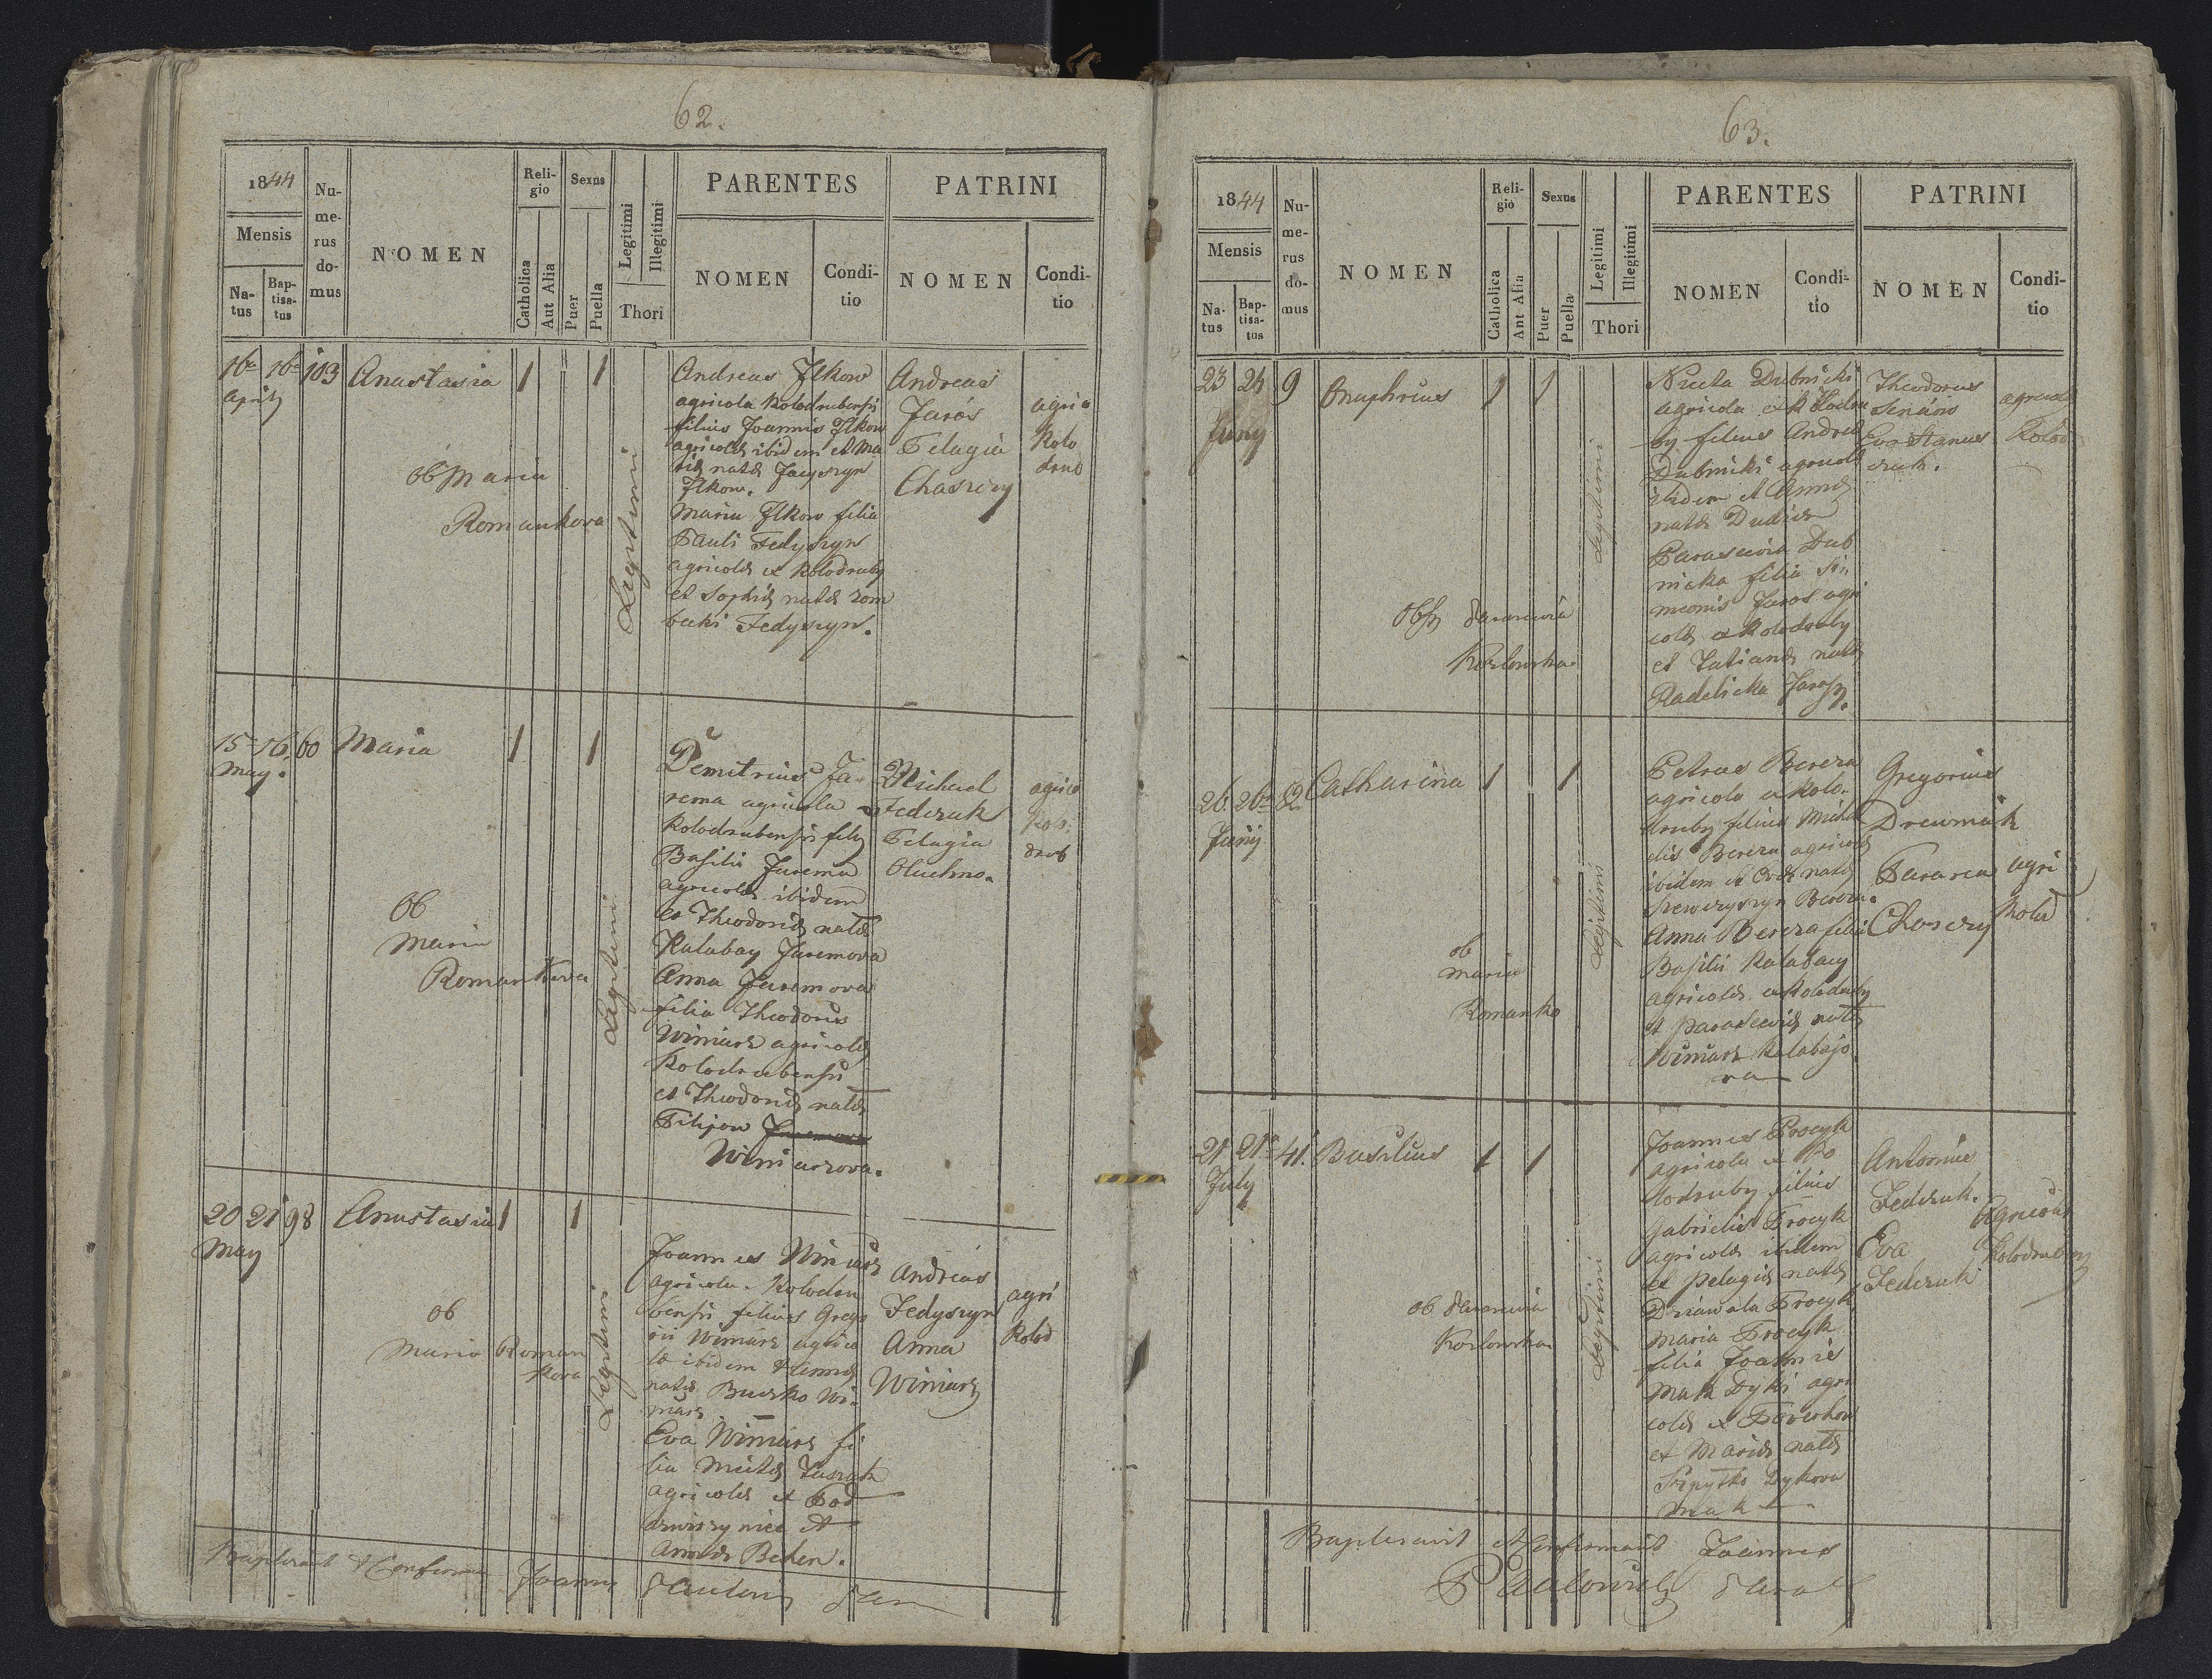 62.
1844
Mensis
Na-
tus
Bap-
tisa-
tus
Nu-
me-
rus
do-
mus
NOMEN
Reli-
gio
Catholica
Aut Alia
Sexus
Puer
Puella
Legitimi
Illegitimi
Thori
PARENTES
NOMEN
Condi-
tio
PATRINI
NOMEN
Condi-
tio
16a 16a 103 Anastasia 1 1
Aprilj
ob Maria
Romankova
Legitimi
Andreas Ilkow
agricola Kolodrubensis
filius Joannis Ilkow
agricolæ ibidem et Ma
riæ natæ Jacyszyn
Ilkow.
Maria Ilkow filia
Pauli Fedyszyn
agricolæ ex Kolodruby
et Sophiæ natæ Rom
bachi Fedyszyn.
Andreas
Jaros
Pelagia
Chasczy
agric
Kolo
drub
15 16 60 Maria 1 1
May.
ob
Maria
Romankova
Legitimi
Demetrius Ja-
rema agricola
Kolodrubensis fily
Basilii Jarema
agricolæ ibidem
et Theodoriæ natæ
Kalabay Jaremova
Anna Jaremova
filia Theodoris
Winiarz agricolæ
Kolodrubensis
et Theodoriæ natæ
Pilipow
Winiarzova.
Michael
Fedczuk
Pelagia
Oluchno.
agrico
Kolo.
drub
20 21 98 Anastasia 1 1
May
ob
Maria Roman
kova
Legitimi
Joannes Winiarz
agricola Kolodru
bensis filius Grego
rii Winiarz agrico
læ ibidem & Annæ
natæ Buczko Wi-
niarz
Eva Winiarz fi
lia Nicetæ
agricolæ ex Pod
zwirzyniec et
Annæ Beden.
Andreas
Fedyszyn
Anna
Winiarz
agri
Kolod
Baptizavit & Confirmavit Joannes
63.
1844
Mensis
Na-
tus
Bap-
tisa-
tus
Nu-
me-
rus
do-
mus
NOMEN
Reli-
gio
Catholica
Ant Alia
Sexus
Puer
Puella
Legitimi
Illegitimi
Thori
PARENTES
NOMEN
Condi-
tio
PATRINI
NOMEN
Condi-
tio
23 24 9 Onuphrius 1 1
Juny
Obs Parascevia
Kozlowska
Legitimi
Niceta Dubnicki
agricola ex Kolodru
by filius Andreæ
Dubnicki agricolæ
ibidem et Annæ
natæ Dudicz
Parascevia Dub
nicka filia Si-
meonis Jaros agri
colæ ex Kolodruby
et Tatianæ natæ
Radelicka Jarosz.
Theodorus
Senários
Eva Stanus
czuk.
agricola
Kolod
26 26a 82 Catharina 1 1
Junij
ob
Maria
Romanko
Legitimi
Petrus Bereza
agricola ex Kolo-
druby filius Micha
elis Bereza agricolæ
ibidem et Evæ natæ
Szewczyszyn Bereza.
Anna Bereza filia
Basilii Kalabay
agricolæ ex Kolodruby
et Parasceviæ natæ
Winiarz Kalabajo
va
Gregorius
Drewniak
Parasca
Chasczy
agri
Kolod
21 21a 41. Basilius 1 1
July
ob Parascevia
Kozlowska
Legitimi
Joannes Procyk
agricola ex Ko
lodruby filius
Gabrielis Procyk
agricolæ ibidem
et Pelagiæ natæ
Dziawala Procyk
Maria Procyk
filia Joannis
Mak Dyki agri
colæ ex Powerchow
et Mariæ natæ
Szpytko Dykova
Mak
Antonius
Fedczuk.
Eva
Fedczuk
Agricolæ
Kolodruben
Baptisavit et Confirmavit Joannes
Paulowicz